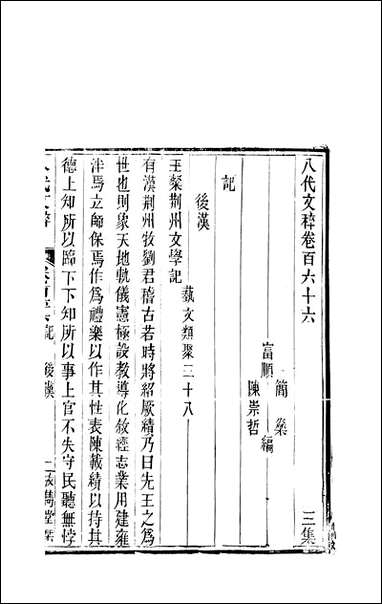 八代文粹卷百六十六 三集
簡燊
富順 編
陳崇哲
記
後漢
王粲荊州文學記 藝文類聚三十八
有漢荊州牧劉君稽古若時將紹厥績乃曰先王之爲
世也則象天地軌儀憲極設教導化敘經志業用建雍
泮焉立師保焉作爲禮樂以作其性表陳載籍以持其
德上知所以蹄下下知所以事上官不失守民聽無悖
八代文粹 卷百六十六 記 後漢 一